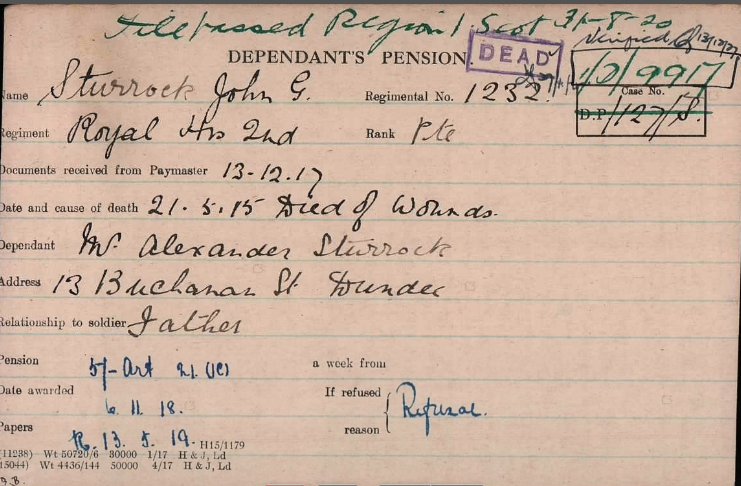 File passed Region 1 Scot 31-8-20
Verified 13/12/27
DEPENDANT'S PENSION.
DEAD
1/D/9917
Name Sturrock John G. Regimental No. 1232
Case No.
D.P. 1127/S.
Regiment Royal Hrs 2nd Rank Pte
Documents received from Paymaster 13-12-17
Date and cause of death 21.5.15 Died of Wounds.
Dependant Mr. Alexander Sturrock
Address 13 Buchanan St Dundee
Relationship to soldier Father
Pension 5/- Art 21 (1c) a week from
Date awarded 6.11.18. If refused
reason Refusal.
Papers R. 13.5.19. H15/1179
(11238) Wt 50720/6 30000 1/17 H & J, Ld
15044) Wt 4436/144 50000 4/17 H & J, Ld